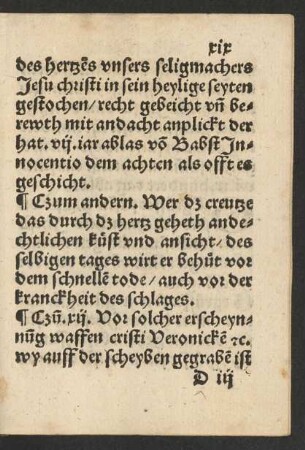 xix
des hertzēs vnsers seligmachers
Jesu christi in sein heylige seyten
gestochen/ recht gebeicht vñ be-
rewth mit andacht anplickt der
hat. vij. iar ablas vō Babst In-
nocentio dem achten als offt es
geschicht.
¶ Czum andern. Wer dz creutze
das durch dz hertz geheth ande-
chtlichen küst vnd ansicht/ des
selbigen tages wirt er behüt vor
dem schnellē tode/ auch vor der
kranckheit des schlages.
¶ Czū. xij. Vor solcher erscheyn-
nūg waffen cristi Veronickē ⁊c.
wy auff der scheyben gegrabē ist
D iij